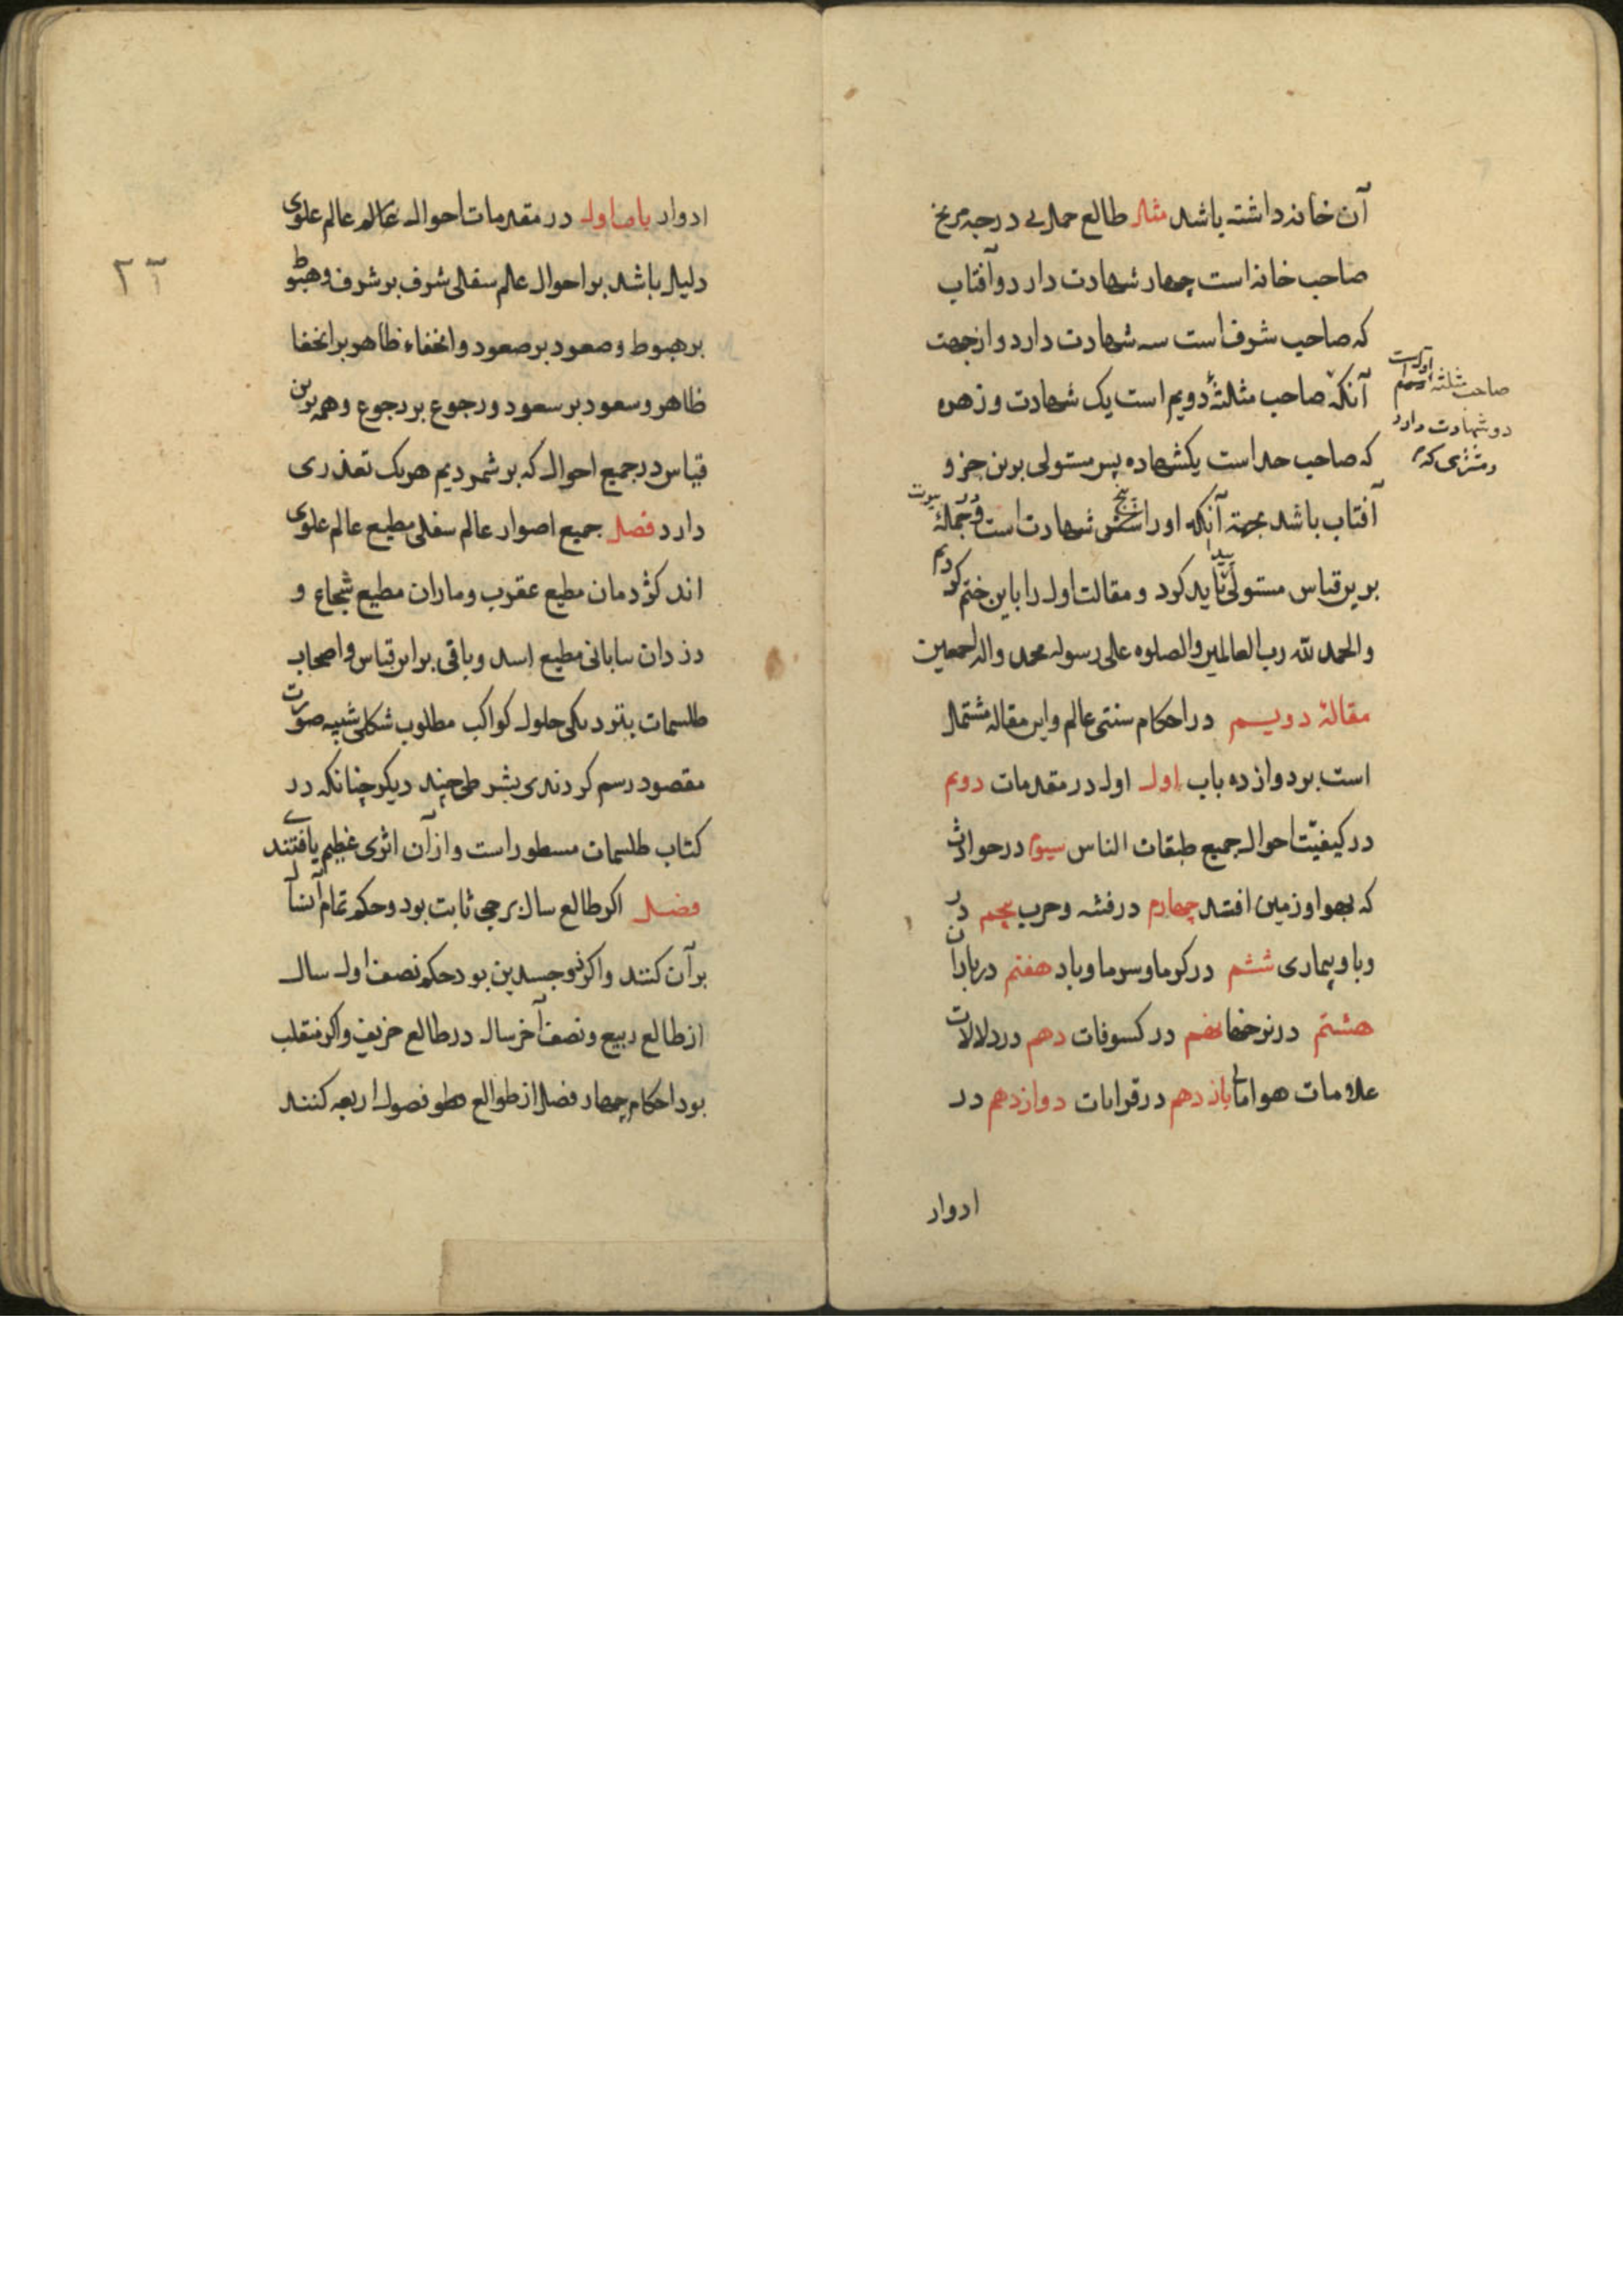 آن خانه داشته باشد مثال طالع حمل بی درجه مریخ
صاحب خانه است چهار شهادت دارد و آفتاب
که صاحب شرف است سه شهادت دارد و از جهت
آنکه صاحب مثلثهٔ دویم است یک شهادت و زهره
صاحب مثلثه اول است
دو شهادت دارد
و مشتری که
که صاحب حد است یکشهاده پس مستولی برین جزو
آفتاب باشد بجهة آنکه او را شش شهادت است و در جملهٔ بیوت
پنج
برین قیاس مستولی پیدا باید کرد و مقالت اول را باین ختم کردیم
والحمد لله رب العالمین والصلوه علی رسوله محمد واله اجمعین
مقالهٔ دویم در احکام سنتی عالم و این مقاله مشتمل
است بر دوازده باب اول اول در مقدمات دوم
در کیفیّت احوال جمیع طبقات الناس سیوم در حوادث
که بهوا و زمین افتد چهارم در فتنه و حرب پنجم در
وبا و بیماری ششم در کرما و سرما و باد هفتم در باران
هشتم در نرخها نهم در کسوفات دهم در دلالات
علامات هوا یازدهم در قرانات دوازدهم در
ادوار
ادوار باب اول در مقدمات احوال عالم عالم علوی
دلیل باشد بر احوال عالم سفلی شرف بر شرف و هبوط
بر هبوط و صعود بر صعود و انخفاء ظاهر بر انخفا
ظاهر و سعود بر سعود و رجوع بر رجوع و همه برین
قیاس در جمیع احوال که بر شمردیم هریک تعذری
دارد فصل جمیع اصوار عالم سفلی مطیع عالم علوی
اند کژدمان مطیع عقرب و ماران مطیع شجاع و
ددان بیابانی مطیع اسد و باقی براین قیاس و اصحاب
طلسمات بنزدیکی حلول کواکب مطلوب شکلی شبیه صورت
مقصود رسم کردندی بشرطی چند دیکر چنانکه در
کتاب طلسمات مسطور است و از آن اثری عظیم یافتندی
فصل اکر طالع سال برجی ثابت بود و حکم تمام آنسال
بر آن کنند و اکر ذو جسدین بود حکم نصف اول سال
از طالع ربیع و نصف آخر سال در طالع خریف و اکر منقلب
بود احکام چهار فصل از طوالع فصول اربعه کنند